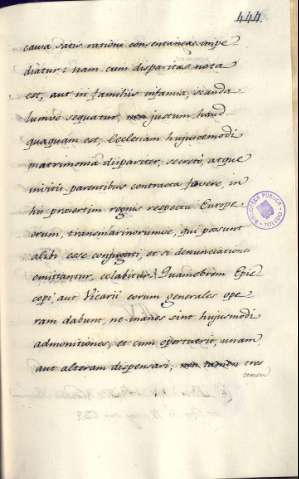 444
causa satis rationi consentanea impe
diatur: nam cum disparitas nota
est, aut in familiis infamia, scanda
lumve sequatur, non justum, haud
quaquam est, Ecclesiam hujuscemodi
matrimonia dispariter, secretò, atque
invitis parentibus contracta favere, in
his præsertim regnis respectu Europe
orum, transmarinorumve, qui possunt
alibi esse conjuncti, et si denunciationes
omittantur,
Quamobrem Epis
copi, aut Vicarii eorum generales ope
ram dabunt, ne inanes sint hujusmodi
admonitiones, et cum oportuerit, unam
aut alteram dispensari, non tamen tres
tamen
BIBLIOTECA PUBLICA
TOLEDO